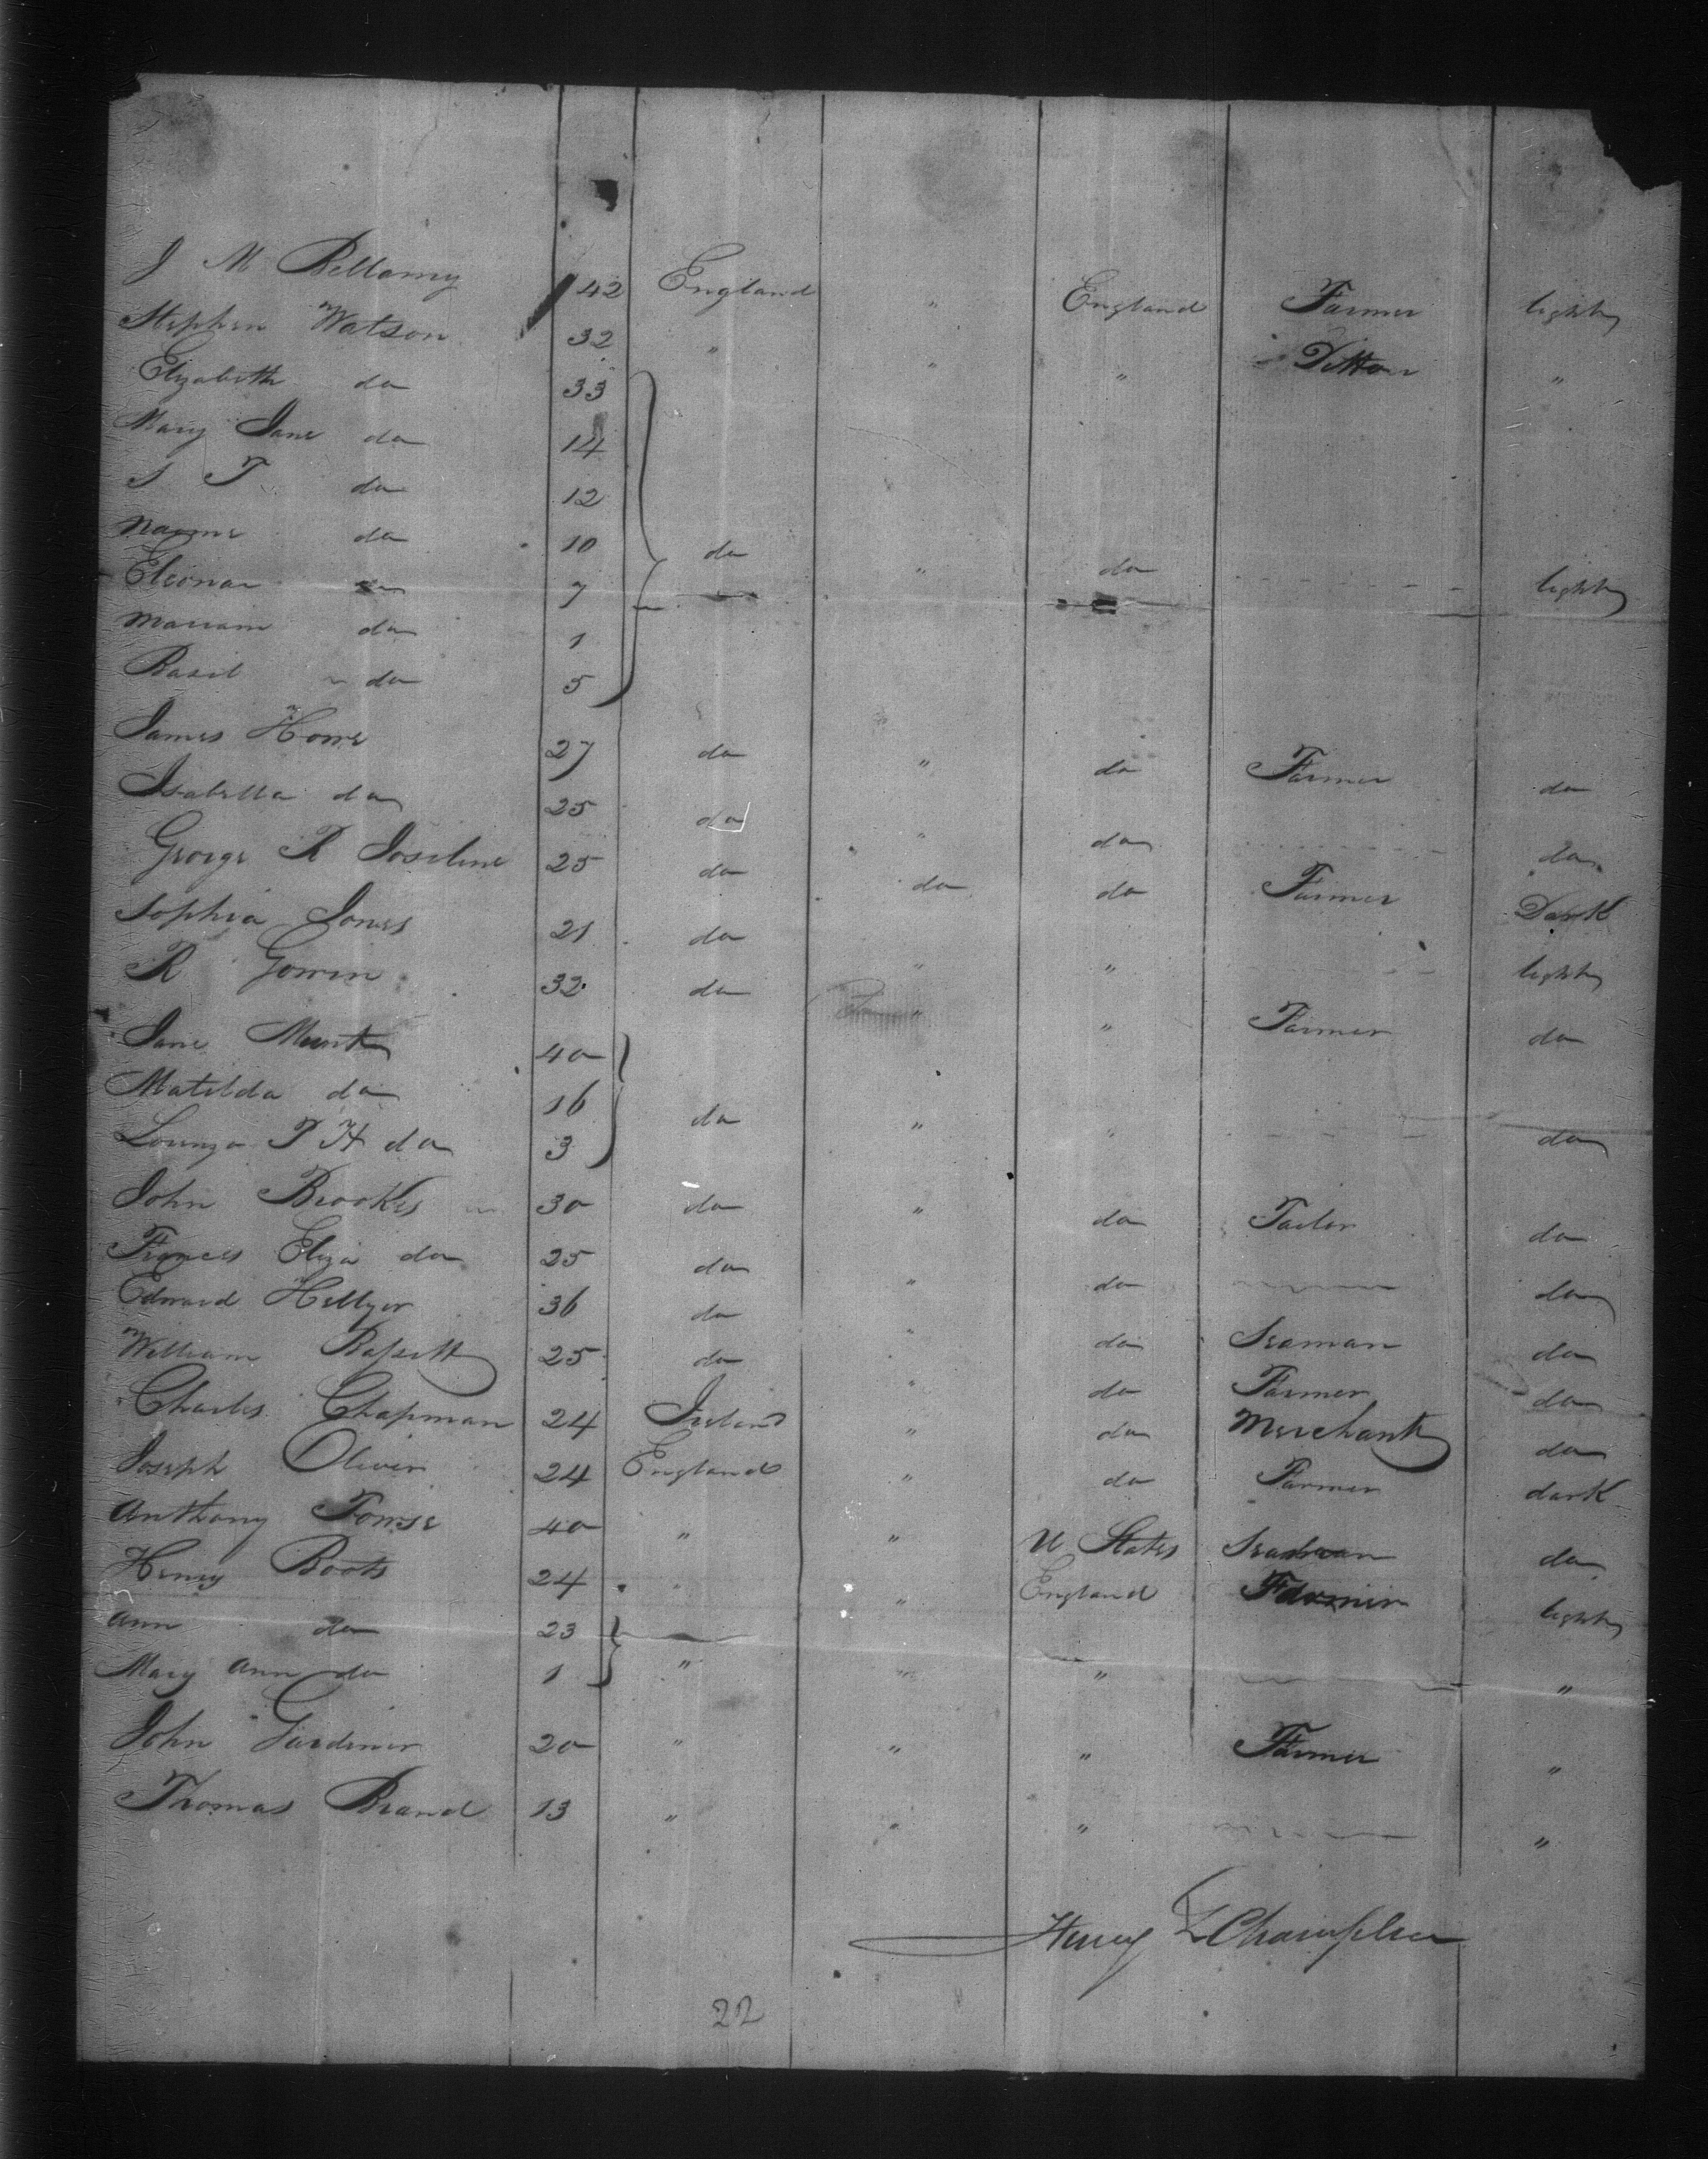 J M Bellamy 42 England " England Farmer light
Stephen Watson 32 " " " Ditto "
Elizabeth do 33
Mary Jane do 14
S T do 12
Naome do 10 do " do light
Eleonar do 7
Mariam do 1
Basil do 5
James Howe 27 do " do Farmer do
Isabella do 25 do " do do
George R Joseline 25 do do do Farmer Dark
Sophia Jones 21 do " " light
R Gowen 32 do " " Farmer do
Jane Munt 40
Matilda do 16 do " " do
Lorenzo T H do 3
John Brookes 30 do " do Tailor do
Frances Eliza do 25 do " do do
Edward Hellyer 36 do " do Seaman do
William Bassett 25 do " do Farmer do
Charles Chapman 24 Ireland " do Merchant do
Joseph Oliver 24 England " do Farmer dark
Anthony Towse 40 " " U States Seaman do
Henry Boots 24 " " England Farmer light
Ann do 23
Mary Ann do 1 " " " "
John Gardiner 20 " " " Farmer "
Thomas Brand 13 " " " "
Henry L Champlin
22